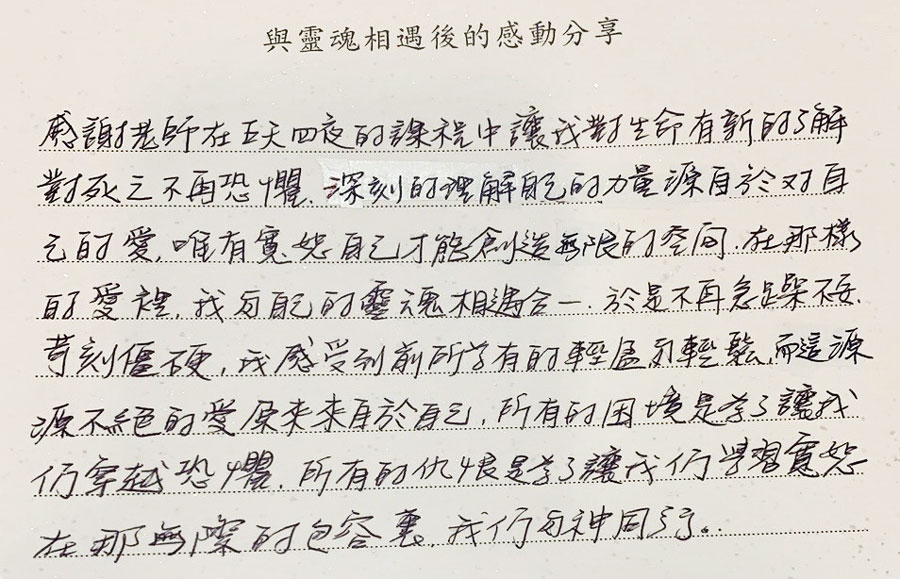 與靈魂相遇後的感動分享
感謝老師在五天四夜的課程中讓我對生命有新的了解
對死亡不再恐懼、深刻的理解自己的力量源自於对自
己的愛，唯有寬恕自己才能創造無限的空间．在那樣
的愛裡，我与自己的靈魂相遇合一．於是不再急躁不安、
苛刻僵硬，我感受到前所未有的輕盈与輕鬆，而這源
源不絕的愛原來來自於自己，所有的困境是為了讓我
们穿越恐懼，所有的仇恨是為了讓我们學習寬恕
在那無際的包容裏，我们与神同行。